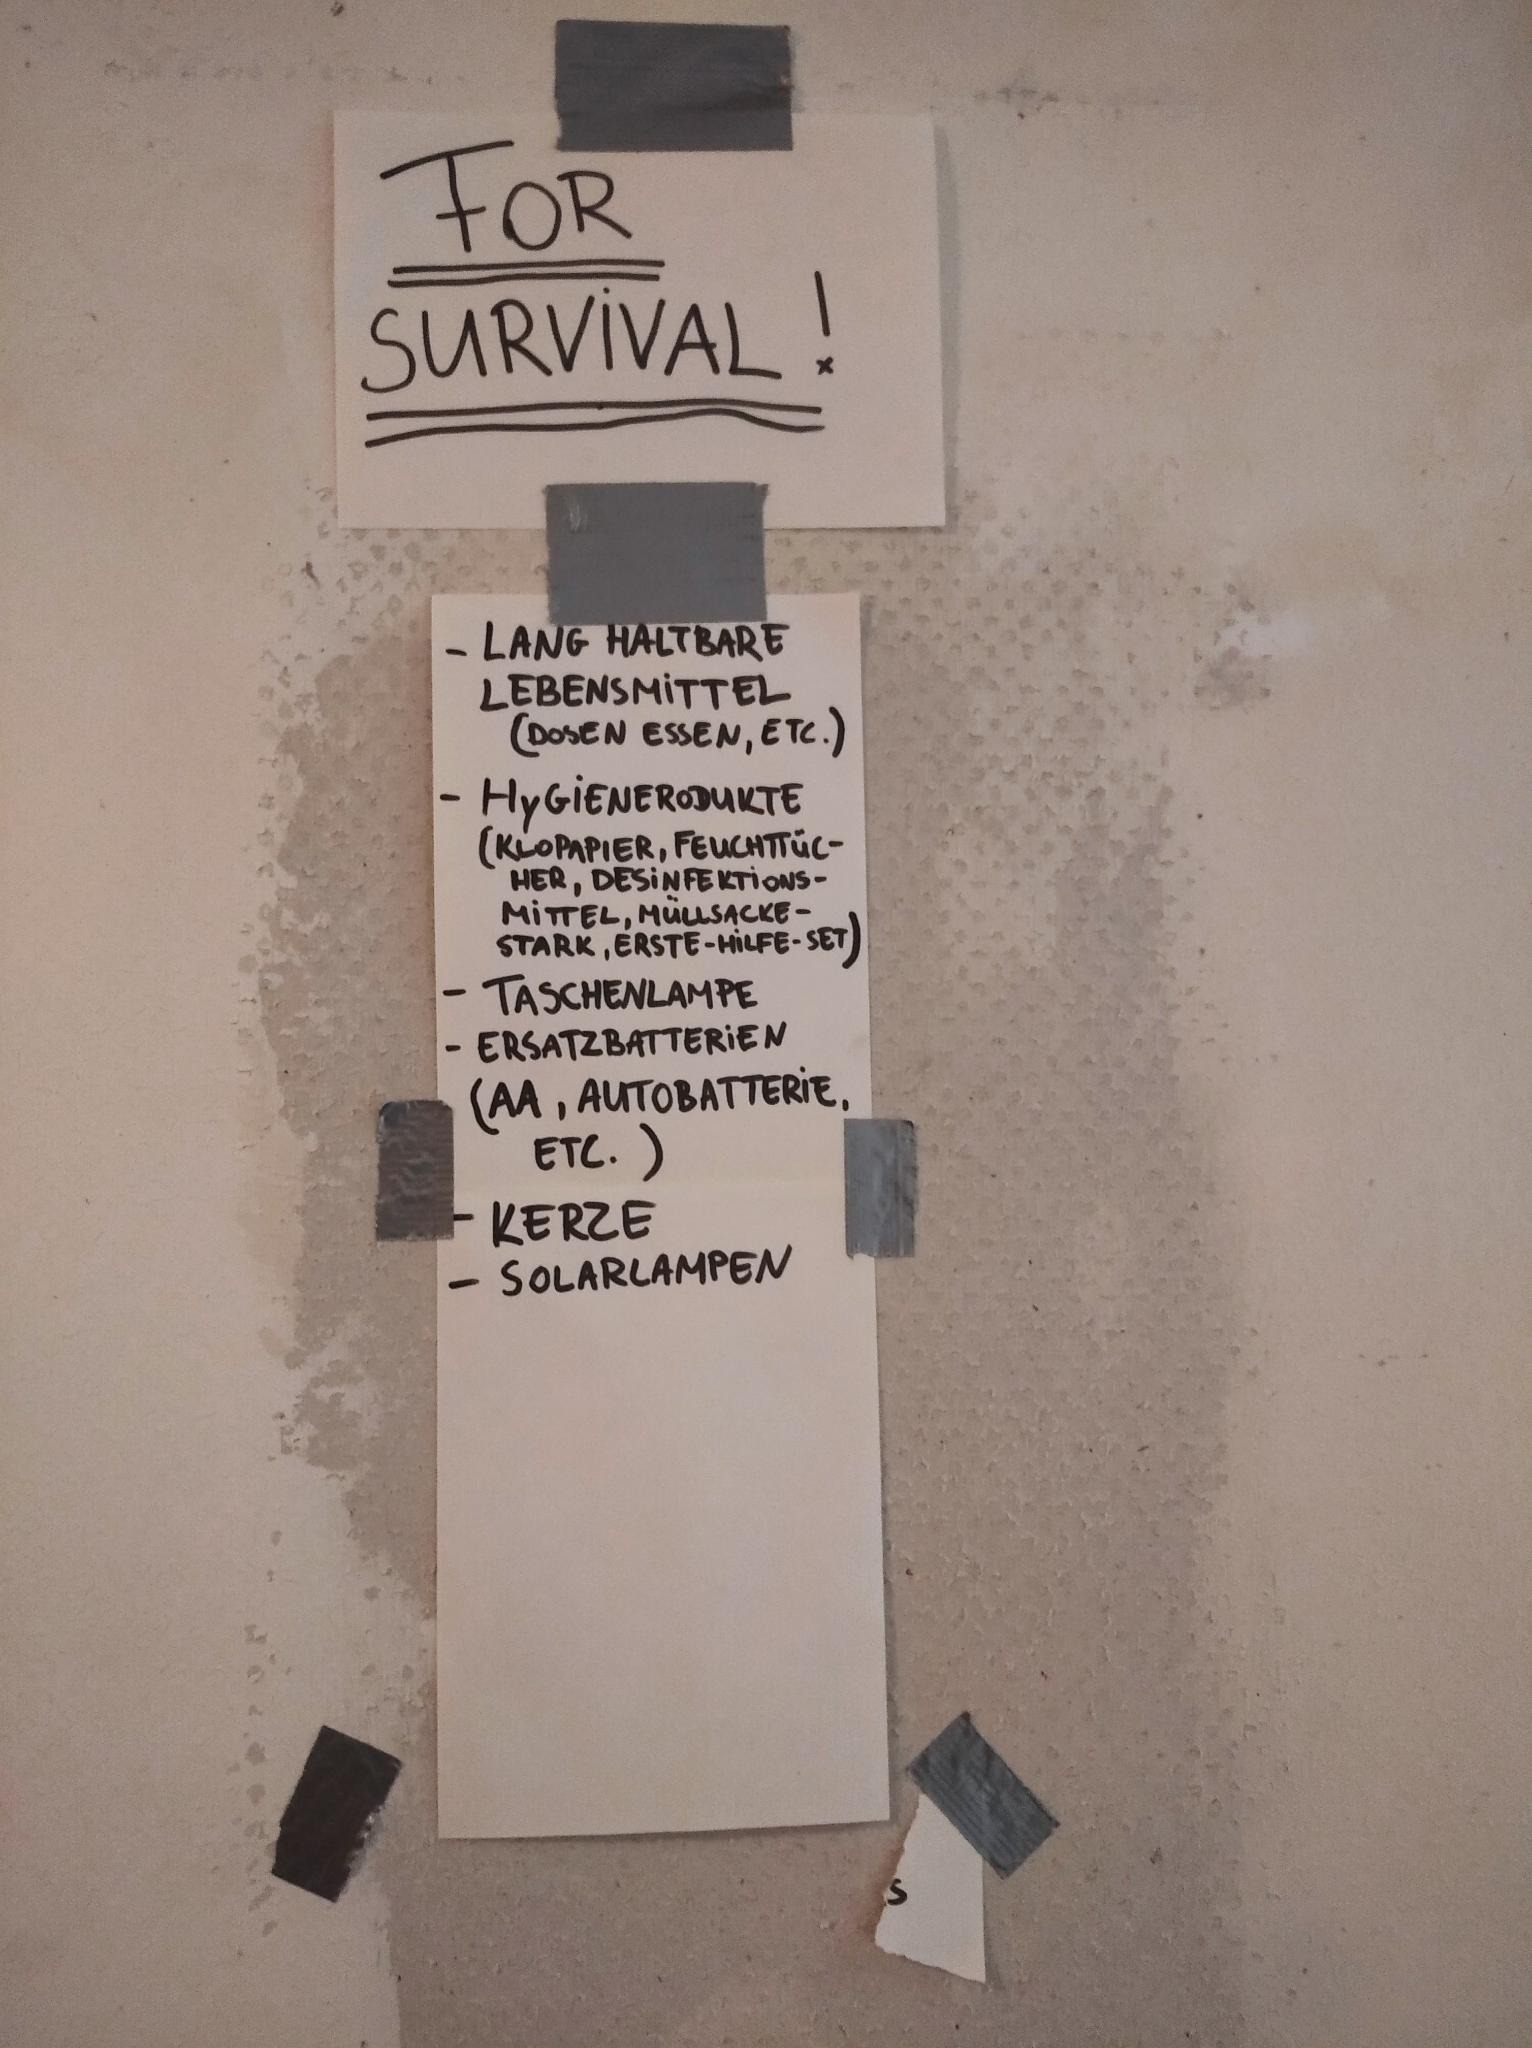 FOR
SURVIVAL!
- LANG HALTBARE
LEBENSMITTEL
(DOSEN ESSEN, ETC.)
- HYGIENERODUKTE
(KLOPAPIER, FEUCHTTÜC-
HER, DESINFEKTIONS-
MITTEL, MÜLLSACKE-
STARK, ERSTE-HILFE-SET)
- TASCHENLAMPE
- ERSATZBATTERIEN
(AA, AUTOBATTERIE,
ETC.)
- KERZE
- SOLARLAMPEN
s